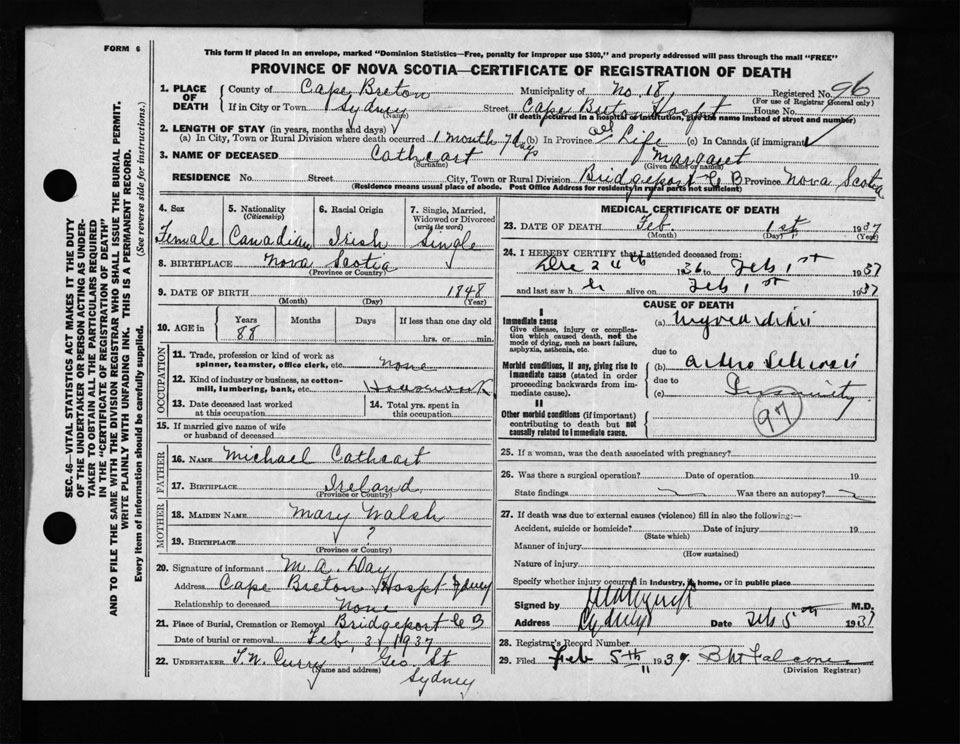 FORM 6
This form if placed in an envelope, marked "Dominion Statistics—Free, penalty for improper use $300," and properly addressed will pass through the mail "FREE"
PROVINCE OF NOVA SCOTIA—CERTIFICATE OF REGISTRATION OF DEATH
SEC. 46—VITAL STATISTICS ACT MAKES IT THE DUTY
OF THE UNDERTAKER OR PERSON ACTING AS UNDER-
TAKER TO OBTAIN ALL THE PARTICULARS REQUIRED
IN THE "CERTIFICATE OF REGISTRATION OF DEATH"
AND TO FILE THE SAME WITH THE DIVISION REGISTRAR WHO SHALL ISSUE THE BURIAL PERMIT.
WRITE PLAINLY WITH UNFADING INK. THIS IS A PERMANENT RECORD.
Every item of information should be carefully supplied. (See reverse side for instructions.)
1. PLACE OF DEATH County of Cape Breton Municipality of No. 18, Registered No. 96
(For use of Registrar General only)
If in City or Town Sydney Street Cape Breton Hospt House No.
(Name) (If death occurred in a hospital or institution, give the name instead of street and number)
2. LENGTH OF STAY (in years, months and days)
(a) In City, Town or Rural Division where death occurred 1 month 7 days (b) In Province all Life (c) In Canada (if immigrant)
3. NAME OF DECEASED Cathcart Margaret
(Surname) (Given name or names)
RESIDENCE No. Street City, Town or Rural Division Bridgeport C B Province Nova Scotia
(Residence means usual place of abode. Post Office Address for residents in rural parts not sufficient)
4. Sex 5. Nationality (Citizenship) 6. Racial Origin 7. Single, Married, Widowed or Divorced (write the word)
Female Canadian Irish Single
8. BIRTHPLACE Nova Scotia
(Province or Country)
9. DATE OF BIRTH 1848
(Month) (Day) (Year)
10. AGE in Years Months Days If less than one day old
88 hrs. or min.
OCCUPATION
11. Trade, profession or kind of work as
spinner, teamster, office clerk, etc. none
12. Kind of industry or business, as cotton-
mill, lumbering, bank, etc. Housework
13. Date deceased last worked
at this occupation
14. Total yrs. spent in
this occupation
15. If married give name of wife
or husband of deceased
FATHER
16. NAME Michael Cathcart
17. BIRTHPLACE Ireland
(Province or Country)
MOTHER
18. MAIDEN NAME Mary Walsh
19. BIRTHPLACE ?
(Province or Country)
20. Signature of informant M. A. Day
Address Cape Breton Hospt Sydney
Relationship to deceased None
21. Place of Burial, Cremation or Removal Bridgeport C B
Date of burial or removal Feb, 3, 1937
22. UNDERTAKER T. W. Curry Geo. St
(Name and address)
Sydney
MEDICAL CERTIFICATE OF DEATH
23. DATE OF DEATH Feb. 1st 1937
(Month) (Day) (Year)
24. I HEREBY CERTIFY that I attended deceased from:
Dec 24th 1936 to Feb 1st 1937
and last saw her alive on Feb 1st 1937
CAUSE OF DEATH
I
Immediate cause
Give disease, injury or complica-
tion which caused death, not the
mode of dying, such as heart failure,
asphyxia, asthenia, etc.
(a) Myocarditis
due to
Morbid conditions, if any, giving rise to
immediate cause (stated in order
proceeding backwards from im-
mediate cause).
(b) Arterio Sclerosis
due to
(c)
II
Other morbid conditions (if important)
contributing to death but not
causally related to immediate cause.
97
25. If a woman, was the death associated with pregnancy?
26. Was there a surgical operation? Date of operation 19
State findings Was there an autopsy?
27. If death was due to external causes (violence) fill in also the following:—
Accident, suicide or homicide? Date of injury 19
(State which)
Manner of injury
(How sustained)
Nature of injury
Specify whether injury occurred in Industry, in home, or in public place
Signed by M.D.
Address Sydney Date Feb 5th 1937
28. Registrar's Record Number
29. Filed Feb 5th 1937
11
(Division Registrar)